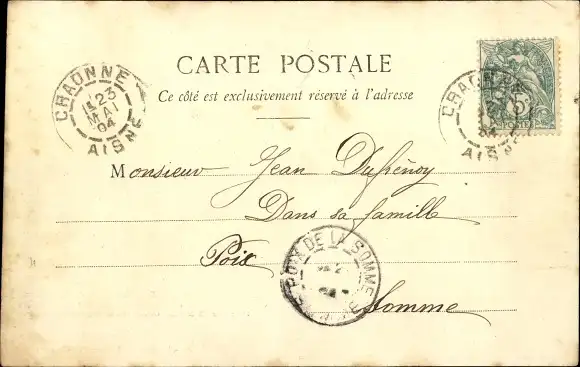 CARTE POSTALE
Ce côté est exclusivement réservé à l'adresse
CRAONNE
23
MAI
04
AISNE
CRAONNE
04
AISNE
5c
POSTES
Monsieur Jean Dufrénoy
Dans sa famille
Poix
POIX DE LA SOMME
Somme